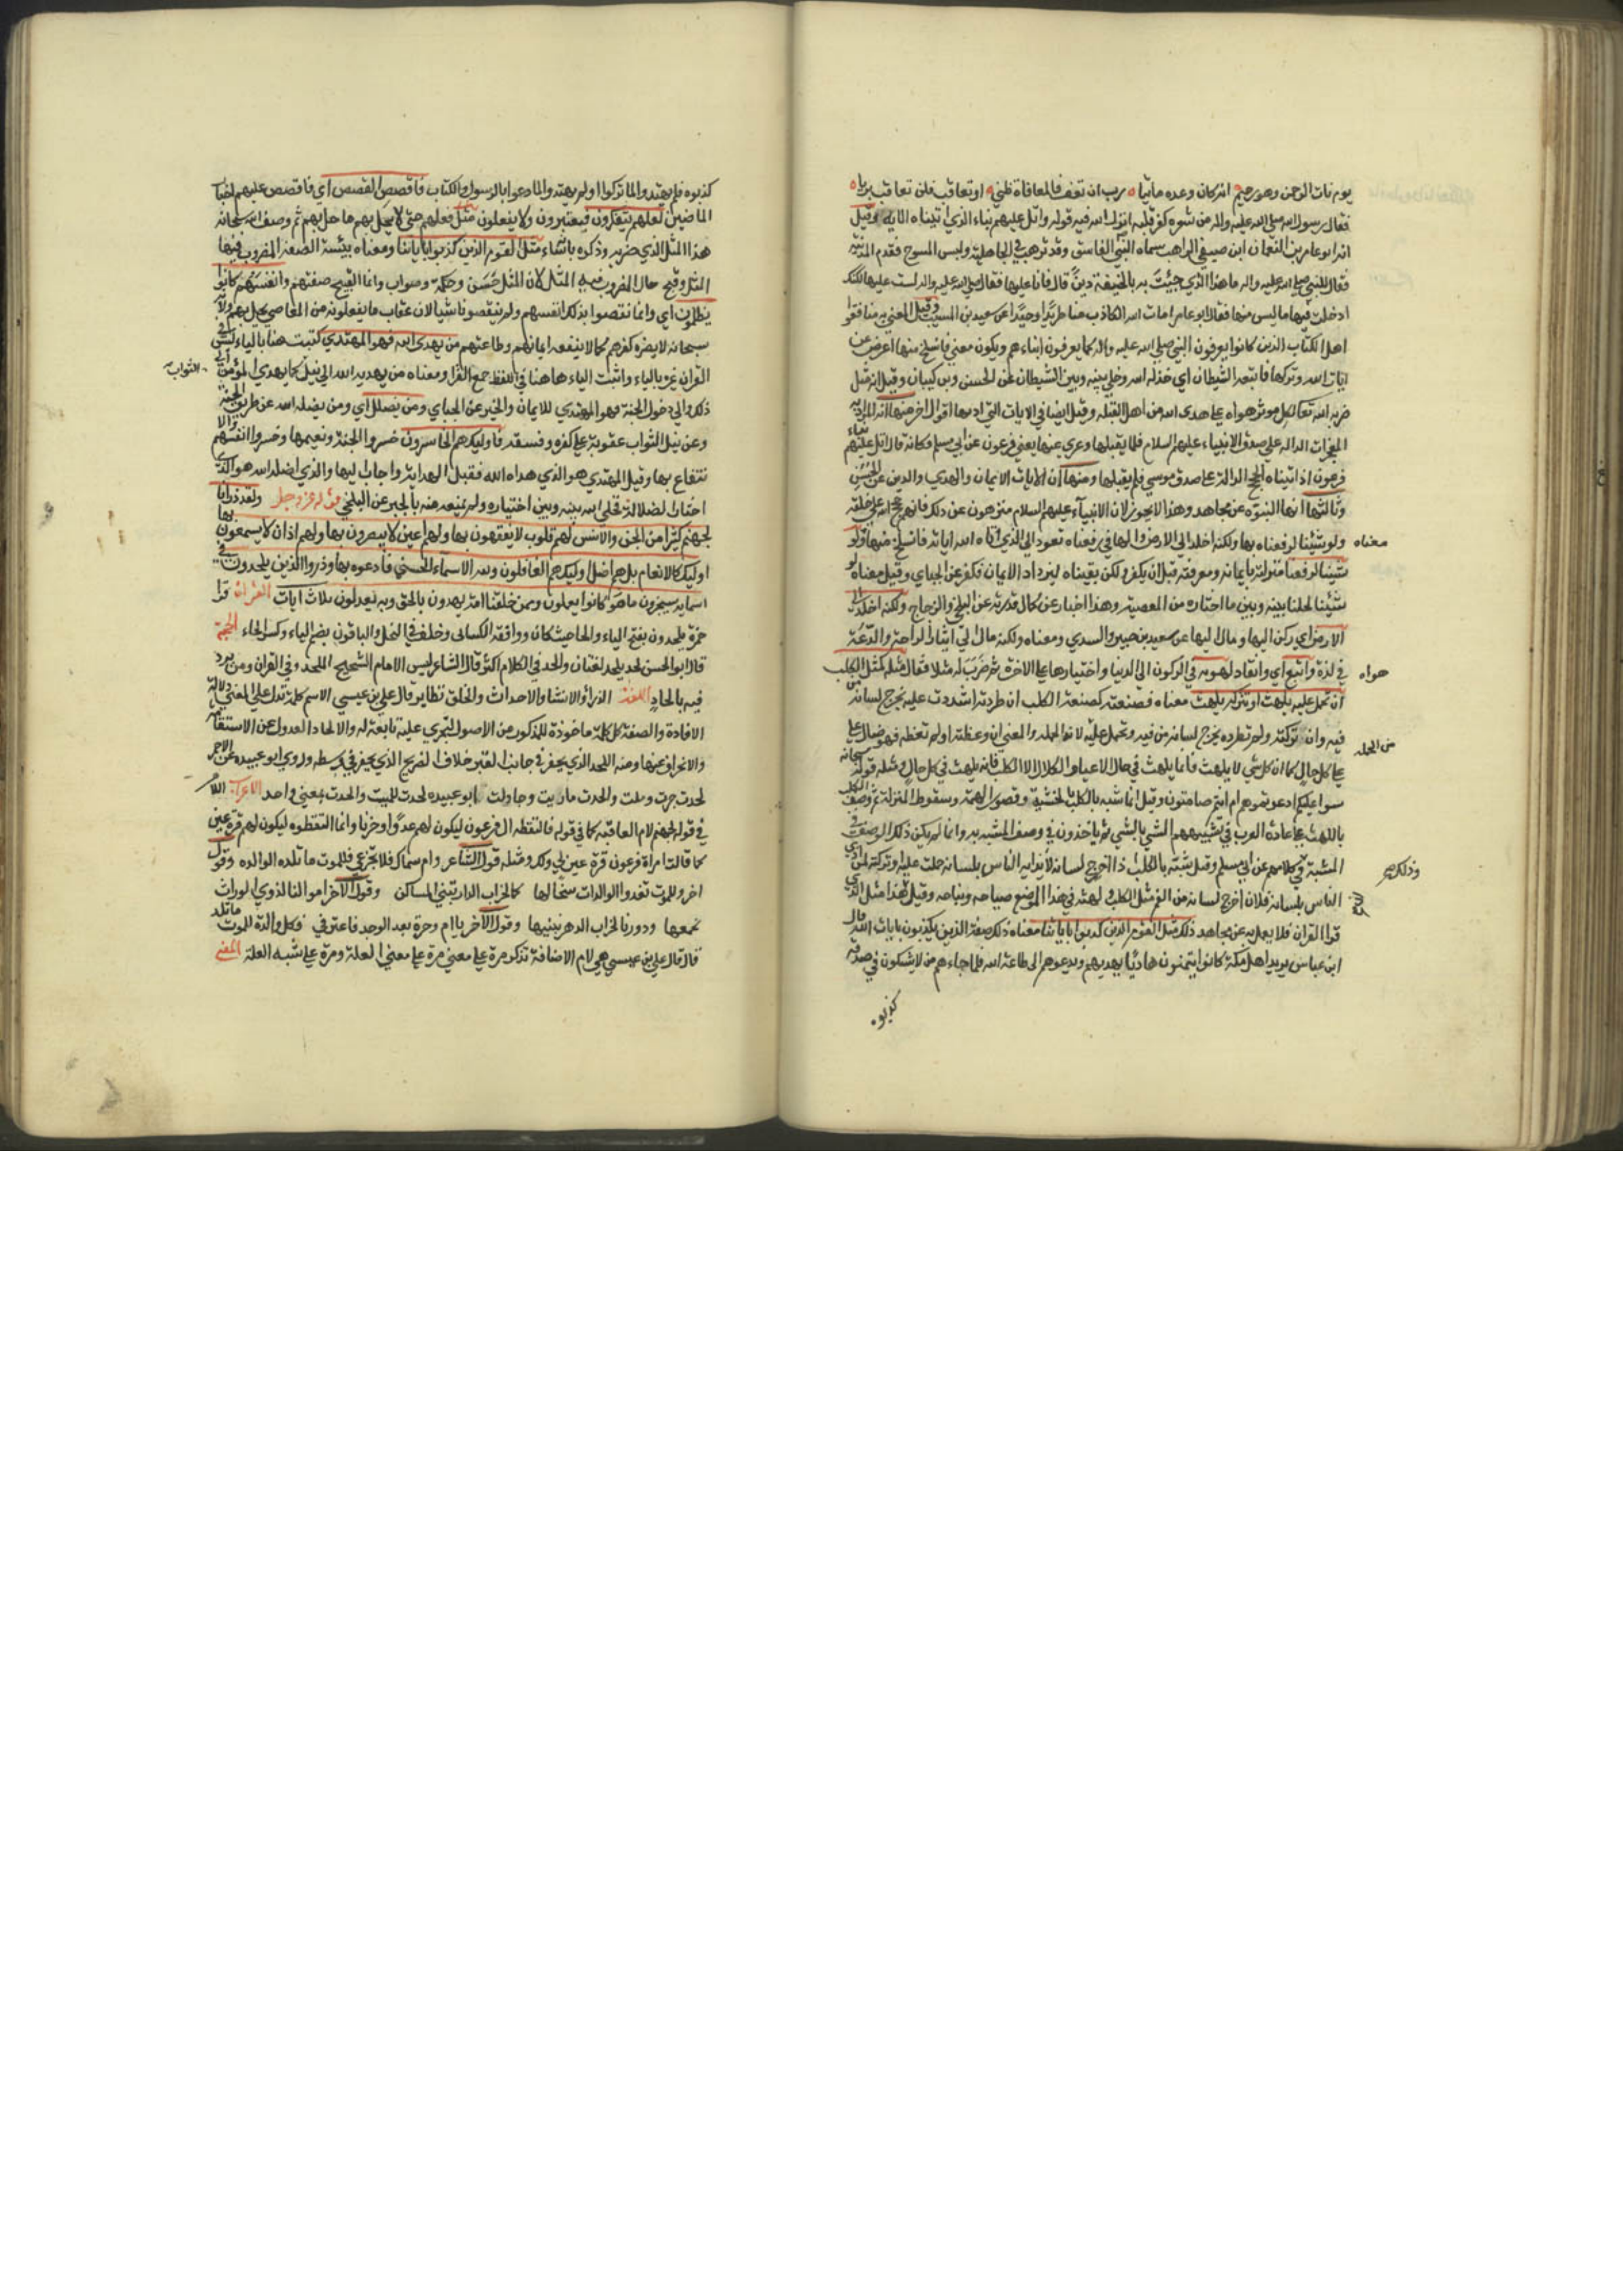 يوم نات الرحمن وهو رحيم انه كان وعده ماتيا رب ان تعف فالمعافاة ظني او تعاقب فلن تعاقب بريا
فقال رسول الله صلى الله عليه واله امن شعره كفر قلبه انزل الله فيه قوله واتل عليهم نباء الذي اتيناه الايه وقيل
انه ابو عامر بن النعمان ابن صيفي الراهب سماه النبي الفاسق وقد ترهب في الجاهلية ولبس المسوح فقدم المدينة
فقال للنبي صلى الله عليه واله ما هذا الذي جيئت به بالحنيفة دين قال فانا عليها فقال صلى الله عليه واله لست عليها لكنك
ادخلت فيها ما ليس منها فقال ابو عامر امات الله الكاذب منا طريدا وحيدا عن سعيد بن المسيب وقيل المعني به منافقوا
اهل الكتاب الذين كانوا يعرفون النبي صلى الله عليه واله كما يعرفون ابناءهم ويكون معنى فانسلخ منها اعرض عن
ايات الله وتركها فاتبعه الشيطان اي خذله الله وخلى بينه وبين الشيطان عن الحسن وبن كيسان وقيل انه مثل
ضربه الله تعالى لكل موثر هواه على هدى الله من اهل القبلة وقيل ايضا في الايات التي اوتيها اقوال اخر منها انه المراد به
المعجزات الداله على صدق الانبياء عليهم السلام فلم يقبلها وعري عنها يعني فرعون عن ابي مسلم فكانه قال اتل عليهم نباء
فرعون اذ اتيناه الحجج الدالة على صدق موسى فلم يقبلها ومنها ان الايات الايمان والهدى والدين عن الحسن
وثالثها انها النبوه عن مجاهد وهذا لا يجوز لان الانبياء عليهم السلام منزهون عن ذلك فانهم حجج الله على خلقه
ولو شئنا لرفعناه بها ولكنه اخلد الى الارض والها في رفعناه تعود الى الذي اتاه الله اياته فانسلخ منها ولو
معناه
شئنا لرفعنا منزلته بايمانه ومعرفته قبل ان يكفر ولكن بقيناه ليزداد الايمان فكفر عن الجباي وقيل معناه لو
شئنا لحلنا بينه وبين ما اختاره من المعصية وهذا اخبار عن كمال قدرته عن البلخي والزجاج ولكنه اخلد الى
الارض اي ركن اليها ومال اليها عن سعيد بن جبير والسدي ومعناه ولكنه مال الى ايثار الراحة والدعة
في لذة واتبع اي وانقاد لهويه في الركون الى الدنيا واختيارها على الاخرة ثم ضرب له مثلا فقال فمثله كمثل الكلب
هواه
ان تحمل عليه يلهث او تتركه يلهث معناه فصنعته كصنعة الكلب ان طردته اشددت عليه يخرج لسانه من
فيه وان تركته ولم تطرده يخرج لسانه من فيه وتحمل عليه لانوا الحملة والمعنى ان وعظته او لم تعظه فهو ضال على
من الحمله
على كل حال كما ان كل شي لا يلهث فانما يلهث في حال الاعياء والكلال الا الكلب فانه يلهث في كل حال ومثله قوله سبحانه
سواء عليكم ادعوتموهم ام انتم صامتون وقيل انما شبه بالكلب لخسته وقصور الهمة وسقوط المنزلة ثم وصف الكلب
باللهث على عادة العرب في تشبيههم الشي بالشي ثم ياخذون في وصف المشبه به وانما لم يكن ذلك الوصف في
المشبه وكلامهم عن ابي مسلم وقيل شبه بالكلب اذا اخرج لسانه لايذايه الناس بلسانه حملت عليه او تركته
وذلك
الناس بلسانه فلان اخرج لسانه من الفم مثل الكلب ولهثه في هذا الموضع صياحه ونباحه وقيل هذا مثل الذي
قرا القران فلا يعمل به عن مجاهد ذلك مثل القوم الذين كذبوا باياتنا معناه ذلك صفة الذين يكذبون بايات الله قال
ابن عباس يريد اهل مكة كانوا يتمنون هاديا يهديهم ويدعوهم الى طاعة الله فلما جاءهم من لا يشكون في صدقه
كذبوه
كذبوه فلم يهتدوا لما تركوا ولم يهتدوا لما دعوا بالرسول والكتاب فاقصص القصص اي فاقصص عليهم اخبار
الماضين لعلهم يتفكرون فيعتبرون ولا يفعلون مثل فعلهم حتى لا يحل بهم ما حل بهم ثم وصف الله سبحانه
هذا المثل الذي ضربه وذكره بانه ساء مثلا القوم الذين كذبوا باياتنا ومعناه بيست الصفة المضروب فيها
المثل وقبح حال المضروب فيه المثل لان المثل حسن وحكمة وصواب وانما القبيح صفتهم وانفسهم كانوا
يظلمون اي وانما نقصوا بذلك انفسهم ولم ينقصونا شيا لان عقاب ما يفعلونه من المعاصي يحل بهم والله
سبحانه لا يضره كفرهم كما لا ينفعه ايمانهم وطاعتهم من يهدي الله فهو المهتدي كتبت هنا بالياء ليس في
القران غيره بالياء واثبت الياء هاهنا في اللفظ جمع القرا ومعناه من يهديه الله الى نيل كما يهدي المؤمن الى
الثواب
ذلك والى دخول الجنة فهو المهتدي للايمان والخير عن الجباي ومن يضلل اي ومن يضله الله عن طريق الجنة
وعن نيل الثواب عقوبة على كفره وفسقه فاوليك هم الخاسرون خسروا الجنة ونعيمها وخسروا انفسهم والا
نتفاع بها وقيل المهتدي هو الذي هداه الله فقبل الهداية واجاب اليها والذي اضله الله هو الذي
اختار الضلالة فخلى الله بينه وبين اختياره ولم يمنعه منه بالجبر عن البلخي قوله عز وجل ولقد ذرانا
لجهنم كثيرا من الجن والانس لهم قلوب لا يفقهون بها ولهم اعين لا يبصرون بها ولهم اذان لا يسمعون بها
اوليك كالانعام بل هم اضل اوليك هم الغافلون ولله الاسماء الحسنى فادعوه بها وذروا الذين يلحدون في
اسمايه سيجزون ما كانوا يعملون وممن خلقنا امة يهدون بالحق وبه يعدلون ثلاث ايات القراءة قرا
حمزة يلحدون بفتح الياء والحا حيث كان ووافقه الكسائي وخلف في النحل والباقون بضم الياء وكسر الحاء الحجة
قال ابو الحسن لحد يلحد لغتان والحد في الكلام اكثر قال الشاعر ليس الامام الشحيح الملحد وفي القران ومن يرد
فيه بالحاد اللغة الذرا والانشاء والاحداث والخلق نظاير قال علي بن عيسى الاسم كلمة تدل على المعنى دلالة
الافادة والصفة كل كلمة ماخوذة للمذكور من الاصول لتجري عليه تابعة له والالحاد العدول عن الاستقامة
والانحراف عنها ومنه اللحد الذي يحفر في جانب القبر خلاف الضريح الذي يحفر في وسطه وروى ابو عبيدة عن الاحمر
لحدت جرت وملت والحدت ماريت وجادلت ابو عبيده لحدت للميت والحدت بمعنى واحد الاعراب اللام
في قوله لجهنم لام العاقبة كما في قوله فالتقطه ال فرعون ليكون لهم عدوا وحزنا وانما التقطوه ليكون لهم قرة عين
كما قالت امراة فرعون قرة عين لي ولك ومثله قول الشاعر وام سماك فلا تجزعي فللموت ما تلد الوالده وقول
اخر وللموت تغدوا الوالدات سخالها كما لخراب الدار تبنى المساكن وقول الاخر اموالنا لذوي الوراث
نجمعها ودورنا لخراب الدهر نبنيها وقول الاخر يا ام وجرة بعد الوجد فاعترفي فكل والدة للموت ما تلد
قال قال علي بن عيسى هي لام الاضافة تذكر مرة على معنى مرة على معنى العلة ومرة على شبه العلة المعنى